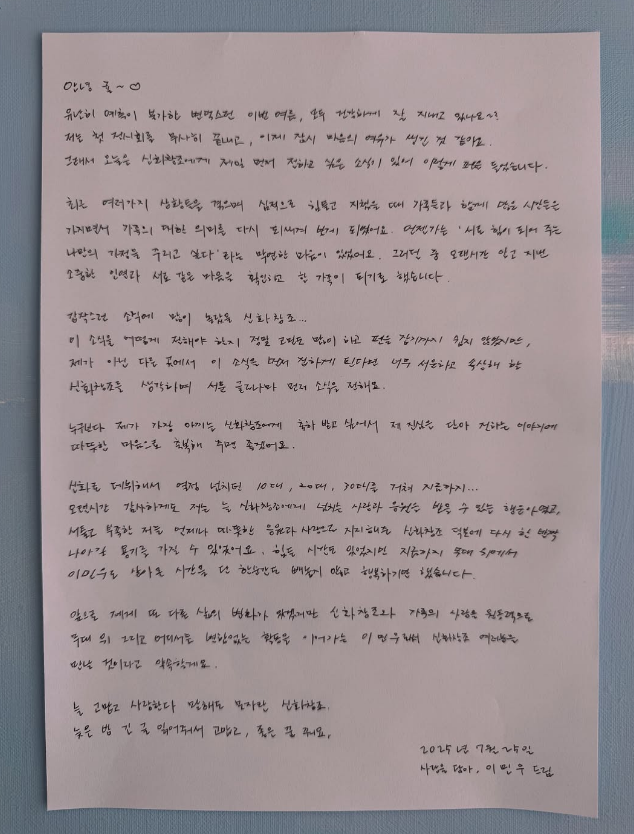 안녕 귤~♡
유난히 예측이 불가한 변덕스런 이번 여름, 모두 건강하게 잘 지내고 있나요~?
저는 첫 전시회를 무사히 끝내고, 이제 잠시 마음의 여유가 생긴 것 같아요.
그래서 오늘은 신화창조에게 제일 먼저 전하고 싶은 소식이 있어 이렇게 펜을 들었습니다.
최근 여러가지 상황들을 겪으며 심적으로 힘들고 지쳤을 때 가족들과 함께 많은 시간들을
가지면서 가족의 대한 의미를 다시 되새기게 되었어요. 언젠가는 '서로 힘이 되어 주는
나만의 가정을 꾸리고 싶다'라는 막연한 마음이 있었어요. 그러던 중 오랜시간 알고 지낸
소중한 인연과 서로 같은 마음을 확인하고 한 가족이 되기로 했습니다.
갑작스런 소식에 많이 놀랐을 신화창조...
이 소식을 어떻게 전해야 할지 정말 고민도 많이 하고 펜을 잡기까지 쉽지 않았지만,
제가 아닌 다른 곳에서 이 소식을 먼저 전하게 된다면 너무 서운하고 속상해 할
신화창조를 생각하며 서툰 글로나마 먼저 소식을 전해요.
누구보다 제가 가장 아끼는 신화창조에게 축하 받고 싶어서 제 진심을 담아 전하는 이야기에
따뜻한 마음으로 축복해 주면 좋겠어요.
신화로 데뷔해서 열정 넘치던 10대, 20대, 30대를 거쳐 지금까지...
오랜시간 감사하게도 저는 늘 신화창조에게 넘치는 사랑과 응원을 받을 수 있는 행운아였고,
서툴고 부족한 저를 언제나 따뜻한 응원과 사랑으로 지지해준 신화창조 덕분에 다시 한 번 더
나아갈 용기를 가질 수 있었어요. 힘든 시간도 있었지만 지금까지 무대 위에서
이민우로 살아온 시간을 단 한순간도 빼놓지 않고 행복하기만 했습니다.
앞으로 제게 또 다른 삶의 변화가 생겼지만 신화창조와 가족의 사랑을 원동력으로
무대 위 그리고 어디서든 변함없는 활동을 이어가는 이민우로서 신화창조 여러분을
만날 것이라고 약속할게요.
늘 고맙고 사랑한다 말해도 모자란 신화창조.
늦은 밤 긴 글 읽어줘서 고맙고, 좋은 꿈 꿔요,
2025년 7월 25일
사랑을 담아, 이민우 드림